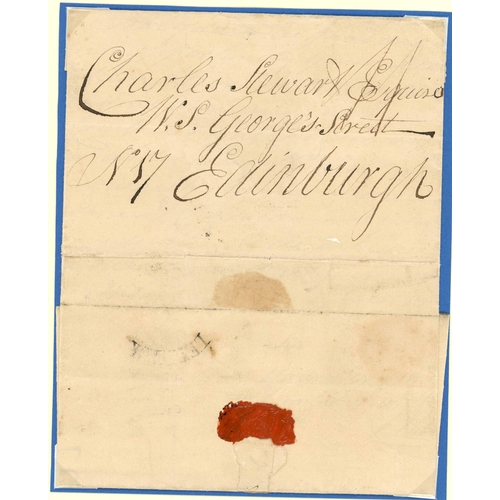 Charles Stewart Esquire
W.S. George's Street
No 17 Edinburgh